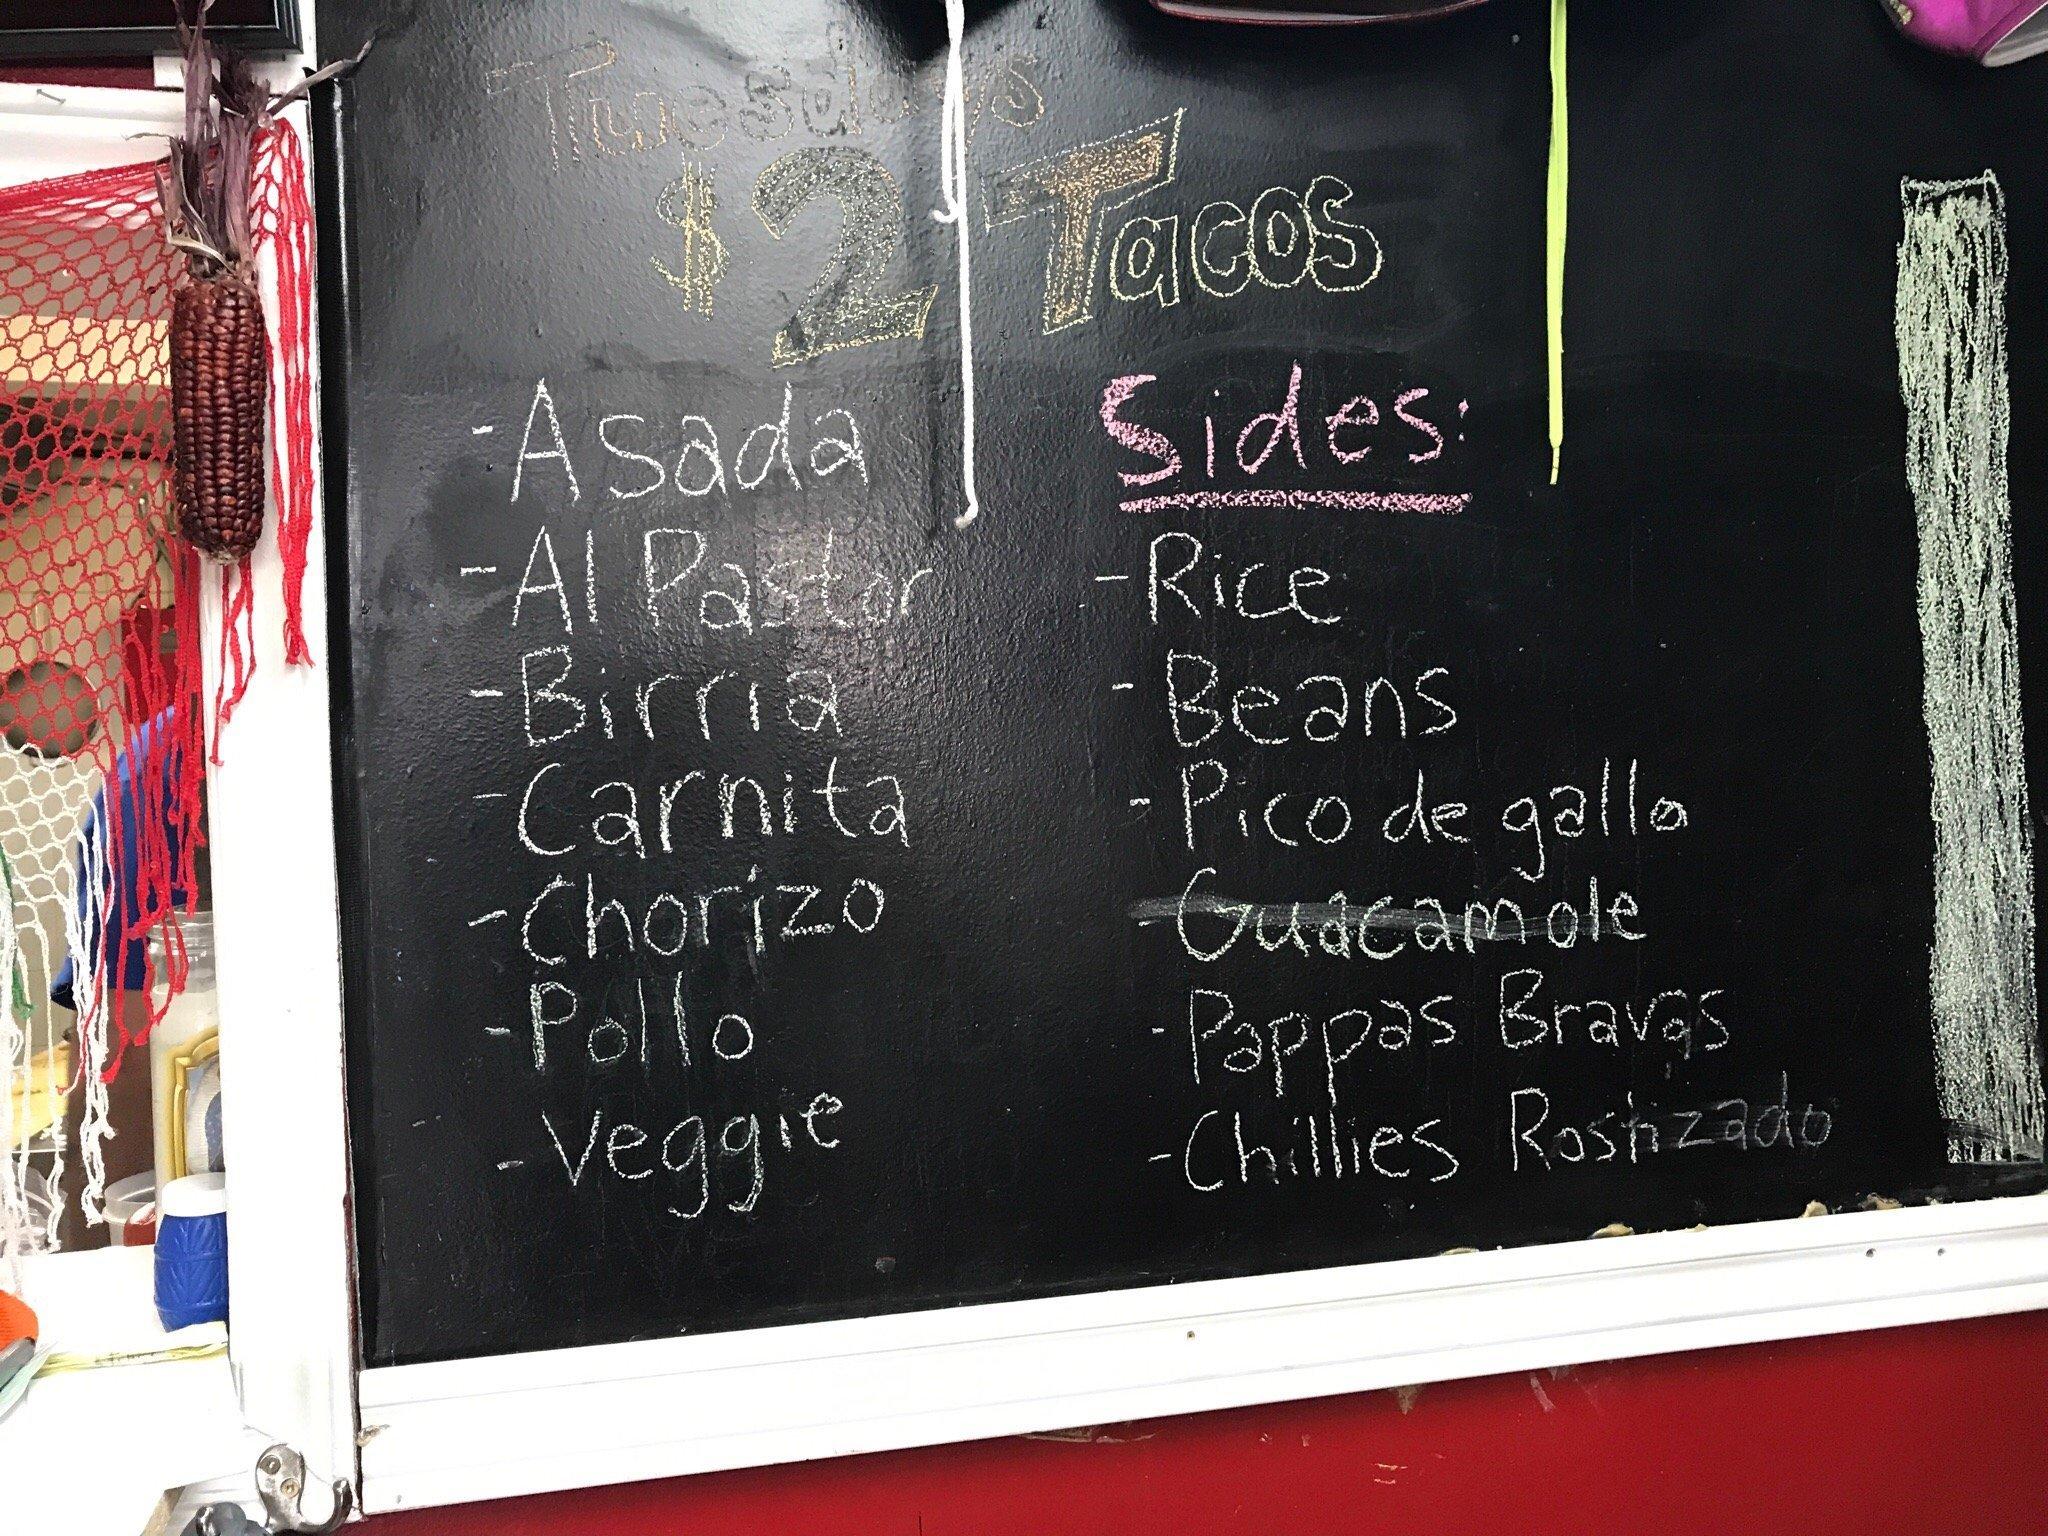 Tuesdays
$2 Tacos
- Asada
- Al Pastor
- Birria
- Carnita
- Chorizo
- Pollo
- Veggie
Sides:
- Rice
- Beans
- Pico de gallo
- Guacamole
- Pappas Bravas
- Chillies Rostizado